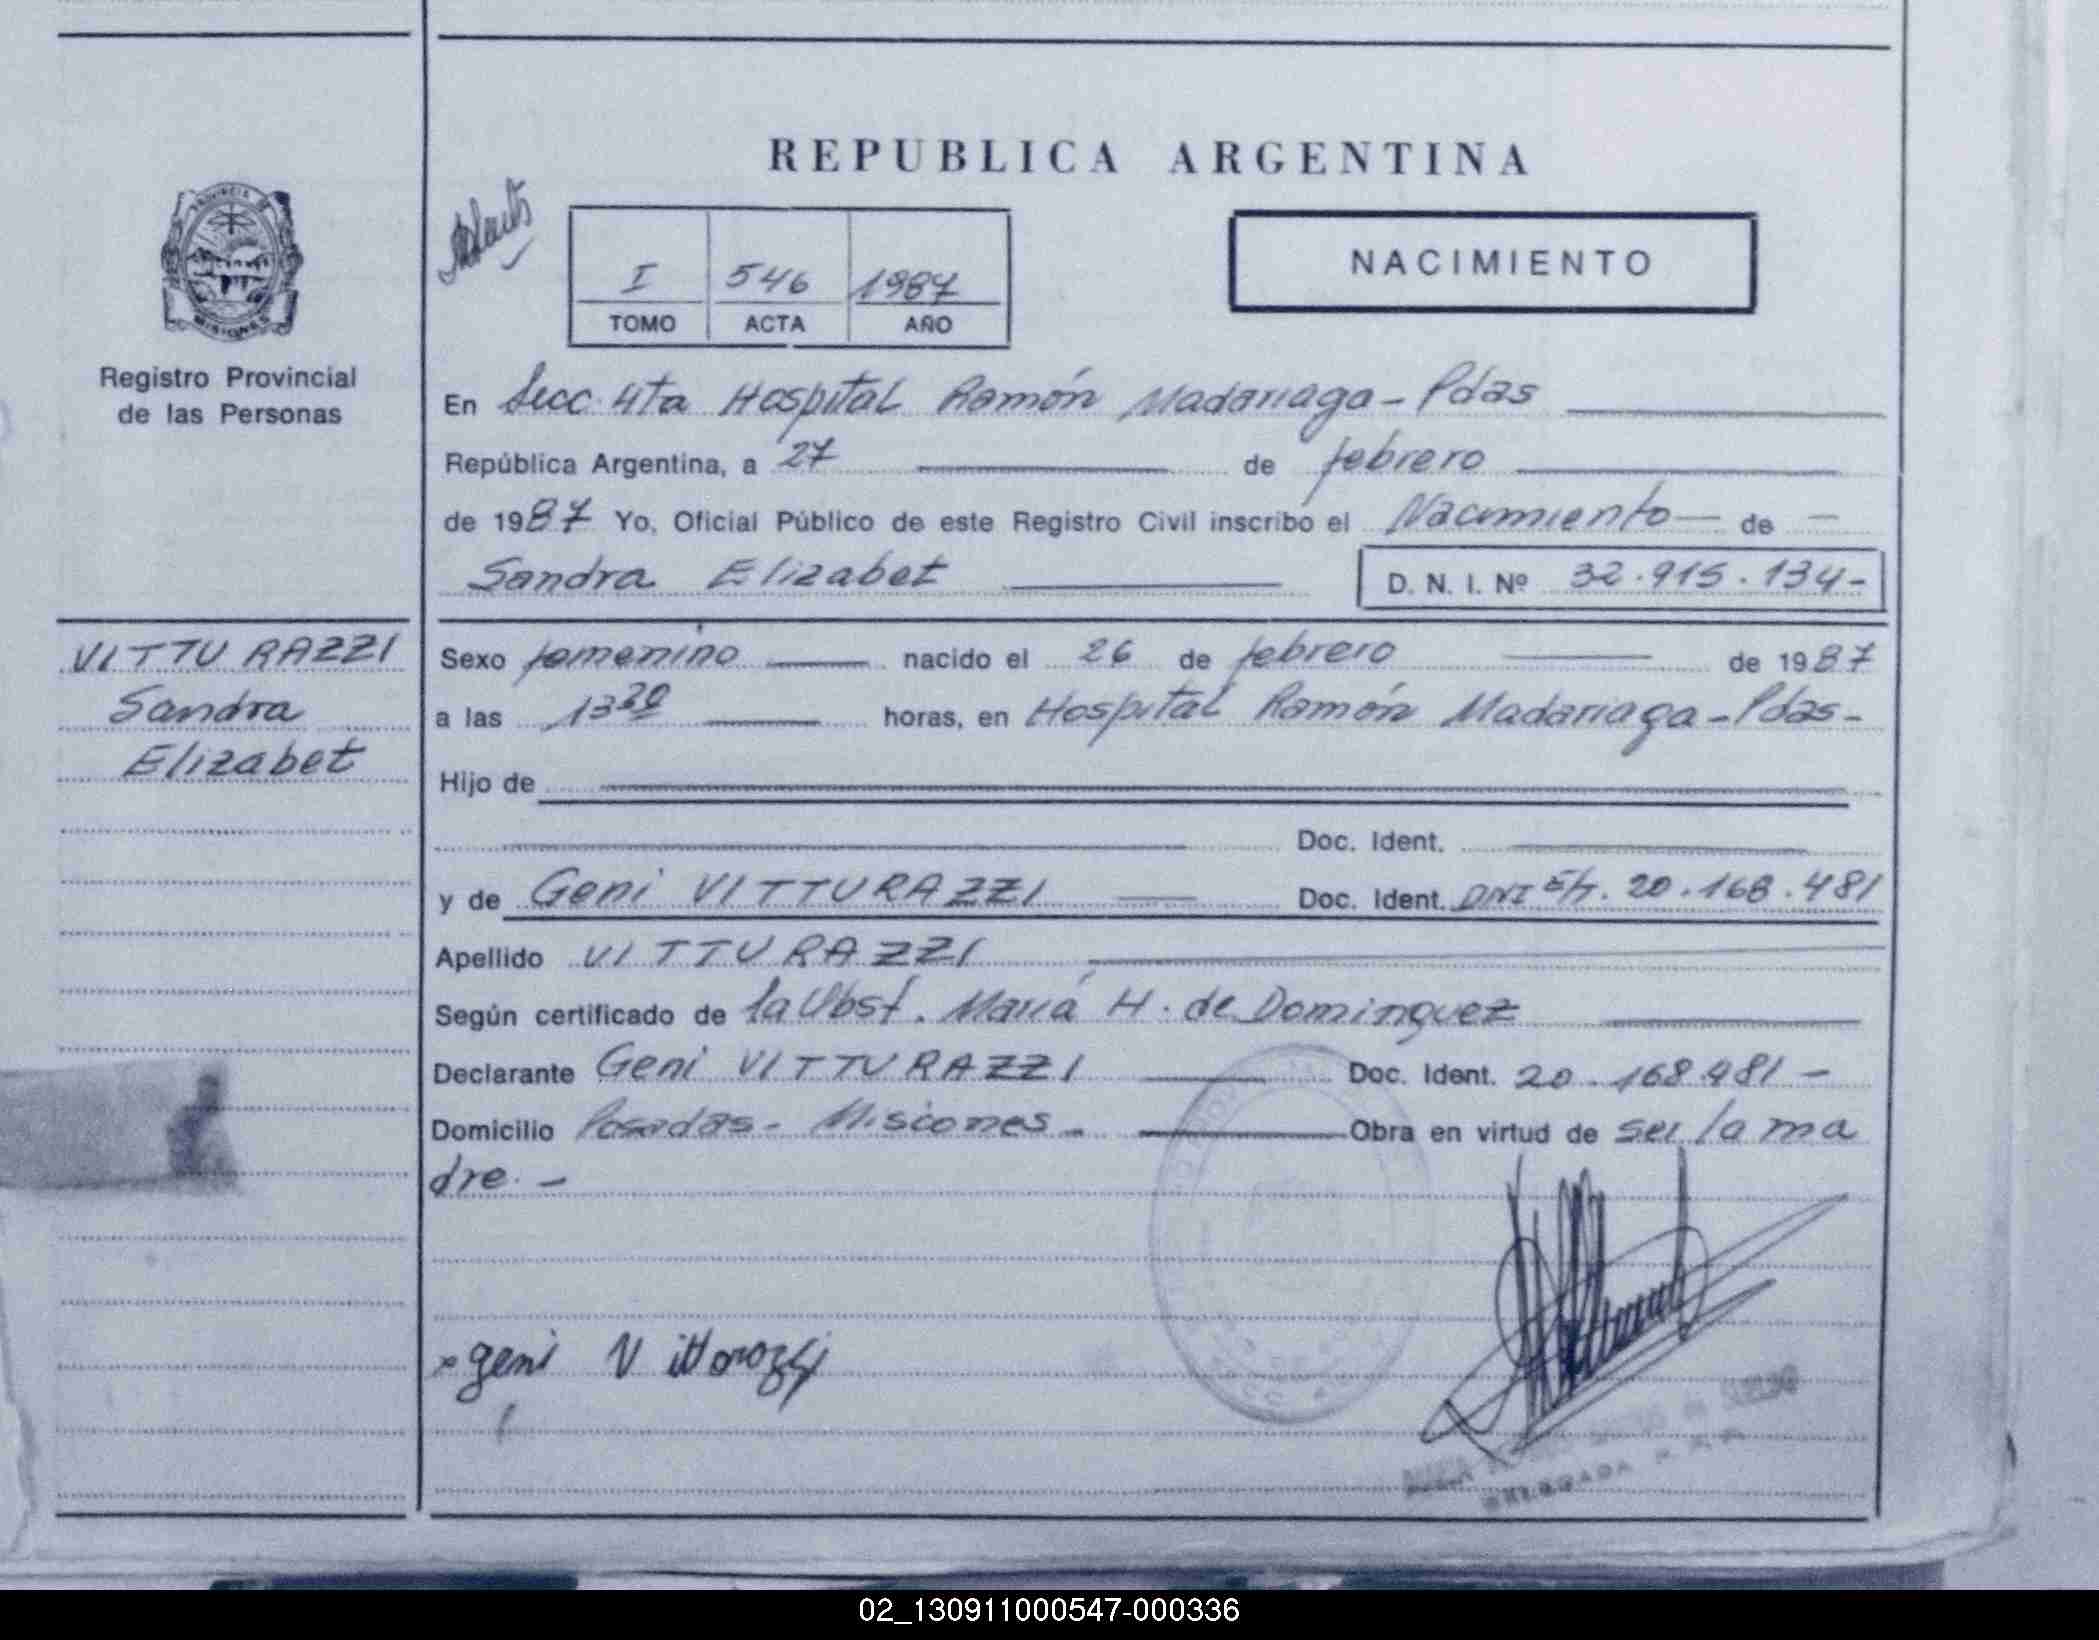 REPUBLICA ARGENTINA
NACIMIENTO
I 546 1987
TOMO ACTA AÑO
PROVINCIA DE
MISIONES
Registro Provincial
de las Personas
En Secc 4ta Hospital Ramón Madariaga - Pdas
República Argentina, a 27 de febrero
de 1987 Yo, Oficial Público de este Registro Civil inscribo el Nacimiento — de —
Sandra Elizabet D. N. I. Nº 32.915.134-
VITTURAZZI
Sandra
Elizabet
Sexo femenino nacido el 26 de febrero de 1987
a las 13 20 horas, en Hospital Ramón Madariaga - Pdas -
Hijo de
Doc. Ident.
y de Geni VITTURAZZI Doc. Ident. DNI E/t. 20.168.481
Apellido VITTURAZZI
Según certificado de la Obst. María H. de Dominguez
Declarante Geni VITTURAZZI Doc. Ident. 20.168.481 -
Domicilio Posadas - Misiones - Obra en virtud de ser la ma
dre. -
geni Vittorazzi
DELEGADA
02_130911000547-000336